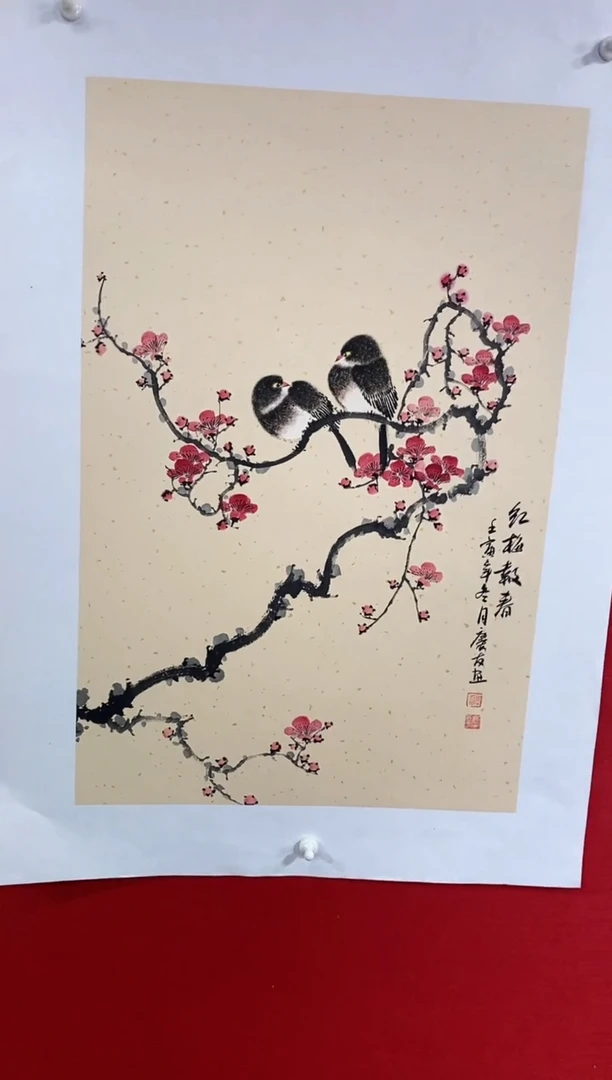 红梅報春
壬寅年冬月庆友画